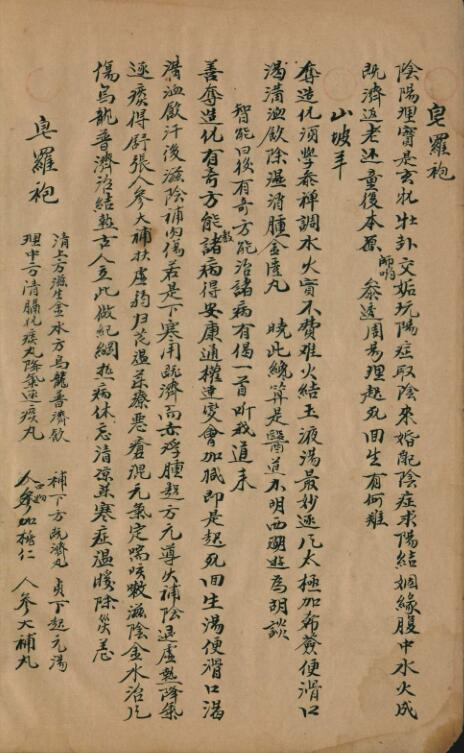 皂羅袍
陰陽理實是玄牝牡卦交姤坑陽症取陰来婚配陰症求陽結姻緣腹中水火成
既濟返老还童復本原師明叅透周易理起死回生有何难
山坡羊
奪造化須學参禅調水火實不費难火結玉液湯最妙逐氾太極加希薟便滑口
渴清血飲除濕消腫金匱丸 曉此總算是醫道不明西湖遊為胡談
智能曰後有奇方能治諸病有偈一首听我道来
善奪造化有奇方能教諸病得安康通權達变會加臧即是起死回生湯便滑口渴
清血飲汗後滋陰補內傷若是下寒用既濟而赤浮腫起方元導火補陰退虛熱降氣
逐痰得舒張人參大補扶虛弱归芪湯药療悪瘡混元氣定喘咳嗽滋陰金水治
傷烏龍普濟治結熱古人立此做紀綱热病休忘清凉药寒症溫暖除災恙
皂羅袍
清上方滋生金水方烏龍普濟飲
理中方清膈化痰丸降氣逐痰丸
補下方既濟丸 貞下起元湯
人參加桃仁 人參大補丸